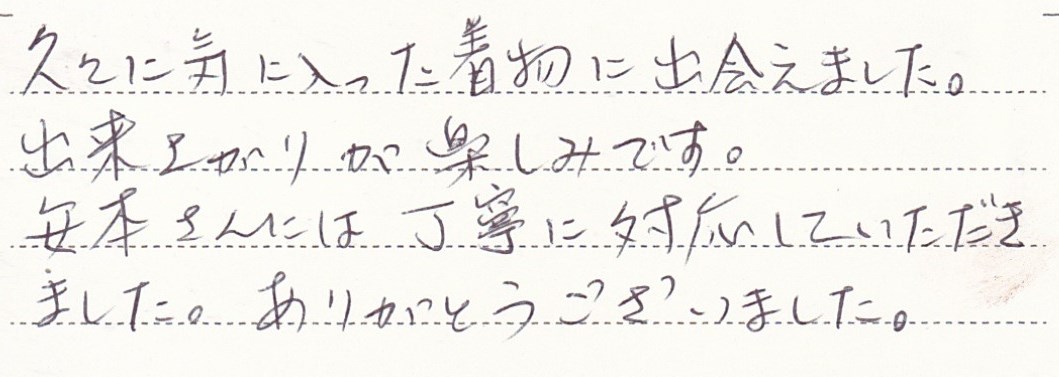 久々に気に入った着物に出会えました。
出来上がりが楽しみです。
安本さんには丁寧に対応していただき
ました。ありがとうございました。